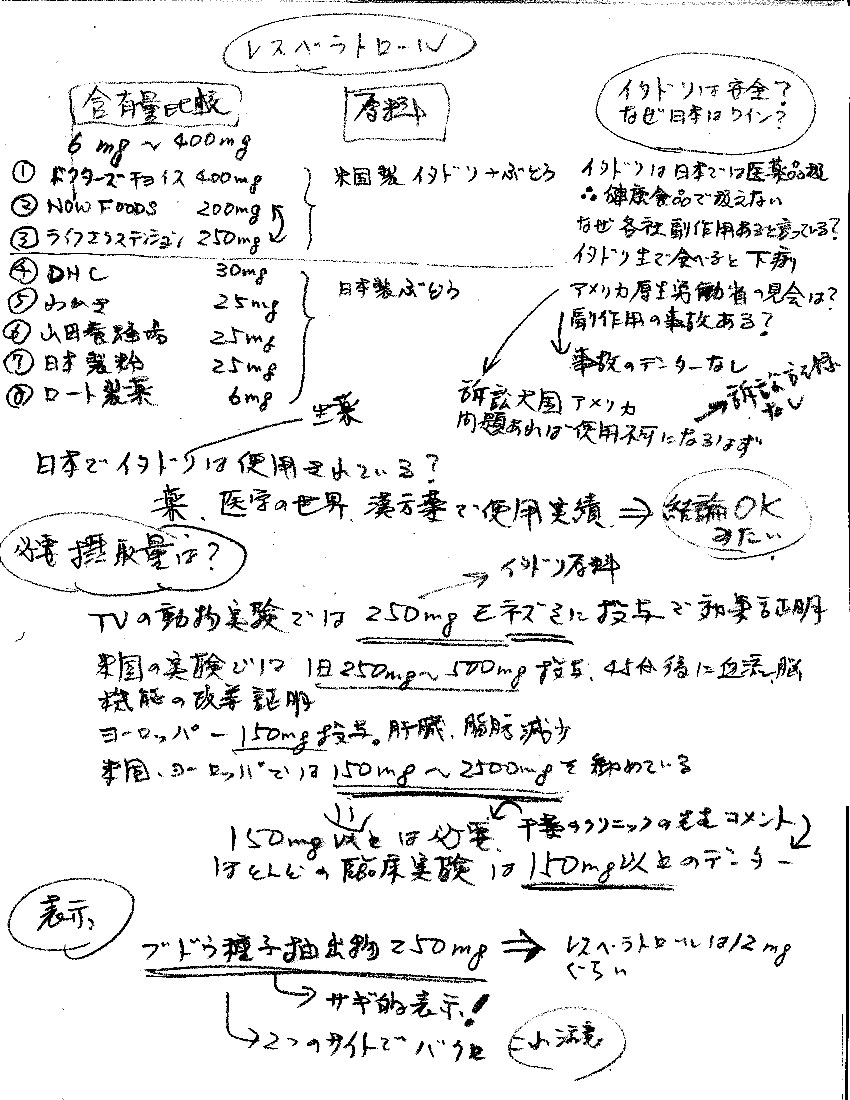 レスベラトロール
含有量比較
6mg～400mg
原料
イタドリは安全?
なぜ日本はワイン?
① ドクターズチョイス 400mg
② NOW FOODS 200mg
③ ライフエクステンション 250mg
米国製 イタドリ+ぶどう
④ DHC 30mg
⑤ わかさ 25mg
⑥ 山田養蜂場 25mg
⑦ 日本製粉 25mg
⑧ ロート製薬 6mg
日本製ぶどう
イタドリは日本では医薬品扱
∴健康食品で扱えない
なぜ各社副作用あると言っている?
イタドリ生で食べると下痢
アメリカ厚生労働省の見会は?
副作用の事故ある?
事故のデーターなし
訴訟大国アメリカ
問題あれば使用不可になるはず
→訴訟記録
なし
生薬
日本でイタドリは使用されている?
薬、医学の世界、漢方薬で使用実績 ⇒ 結論OK
みたい
必要摂取量は?
イタドリ原料
TVの動物実験では 250mgをネズミに投与で効果証明
米国の実験では 1日250mg～500mg投与、45分後に血流、脳
機能の改善証明
ヨーロッパー150mg投与。肝臓、脂肪減少
米国、ヨーロッパでは 150mg～2500mgを勧めている
150mg以上は必要、千葉のクリニックの先生コメント
ほとんどの臨床実験は 150mg以上のデーター
表示
ブドウ種子抽出物250mg ⇒ レスベラトロールは12mg
ぐらい
→サギ的表示!
→2つのサイトでバクロ これ注意